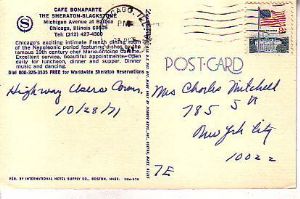 CAFE BONAPARTE
THE SHERATON-BLACKSTONE
Michigan Avenue at Balboa
Chicago, Illinois 60605
Tel: (312) 427-4300
Chicago's exciting intimate French
of the Napoleonic period featuring dishes by the
famous 19th century chef Marie-Antoine
Careme, beautiful appointments
cuisine, luncheon, dinner and supper. Dinner
music and dancing.
Dial 800-325-3535 FREE for Worldwide Sheraton Reservations
POSTCARD
Highway Users Conv.
10/28/71
Mrs Charles Mitchell
785 5th
New York City
10022
7E
PUB. BY INTERNATIONAL HOTEL SUPPLY CO., BOSTON, MASS.